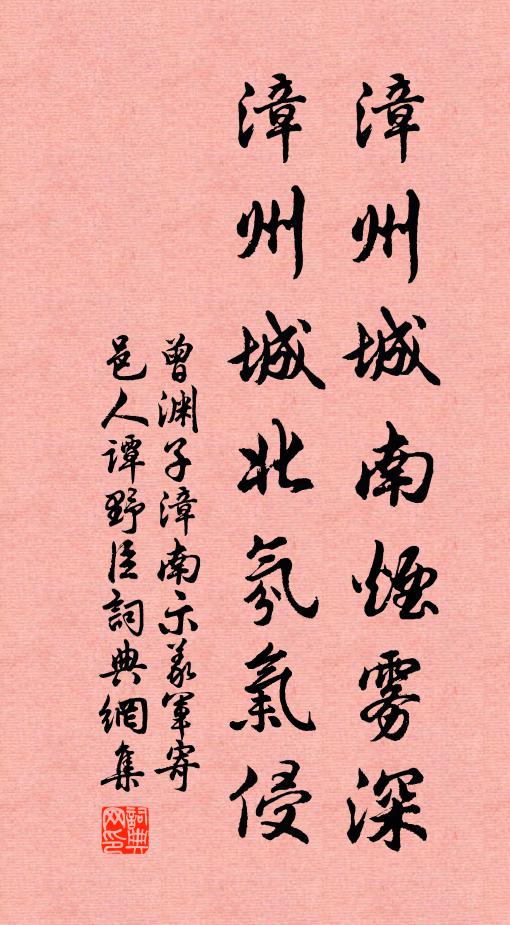 漳州城南煙雾深
漳州城北氛氣侵
曾渊子漳南示義軍寄
邑人谭野臣詞典網集
詞典网印